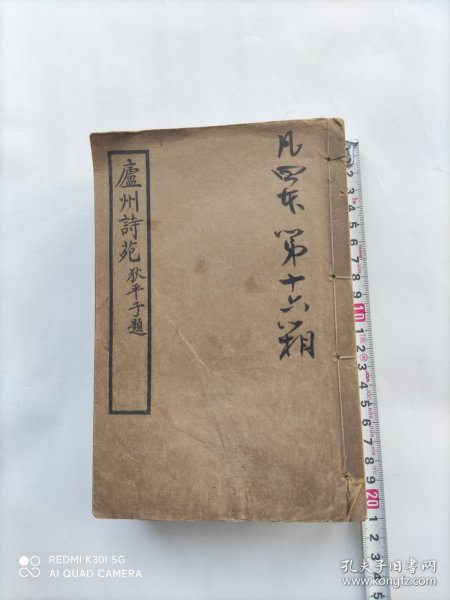 廬州詩苑
狄平子題
凡四本
第十六
1 2 3 4 5 6 7 8 9 10 1 2 3 4 5 6 7 8 9 20 1 2 3 4 5
REDMI K30I 5G
AI QUAD CAMERA
孔夫子旧书网
www.kongfz.com